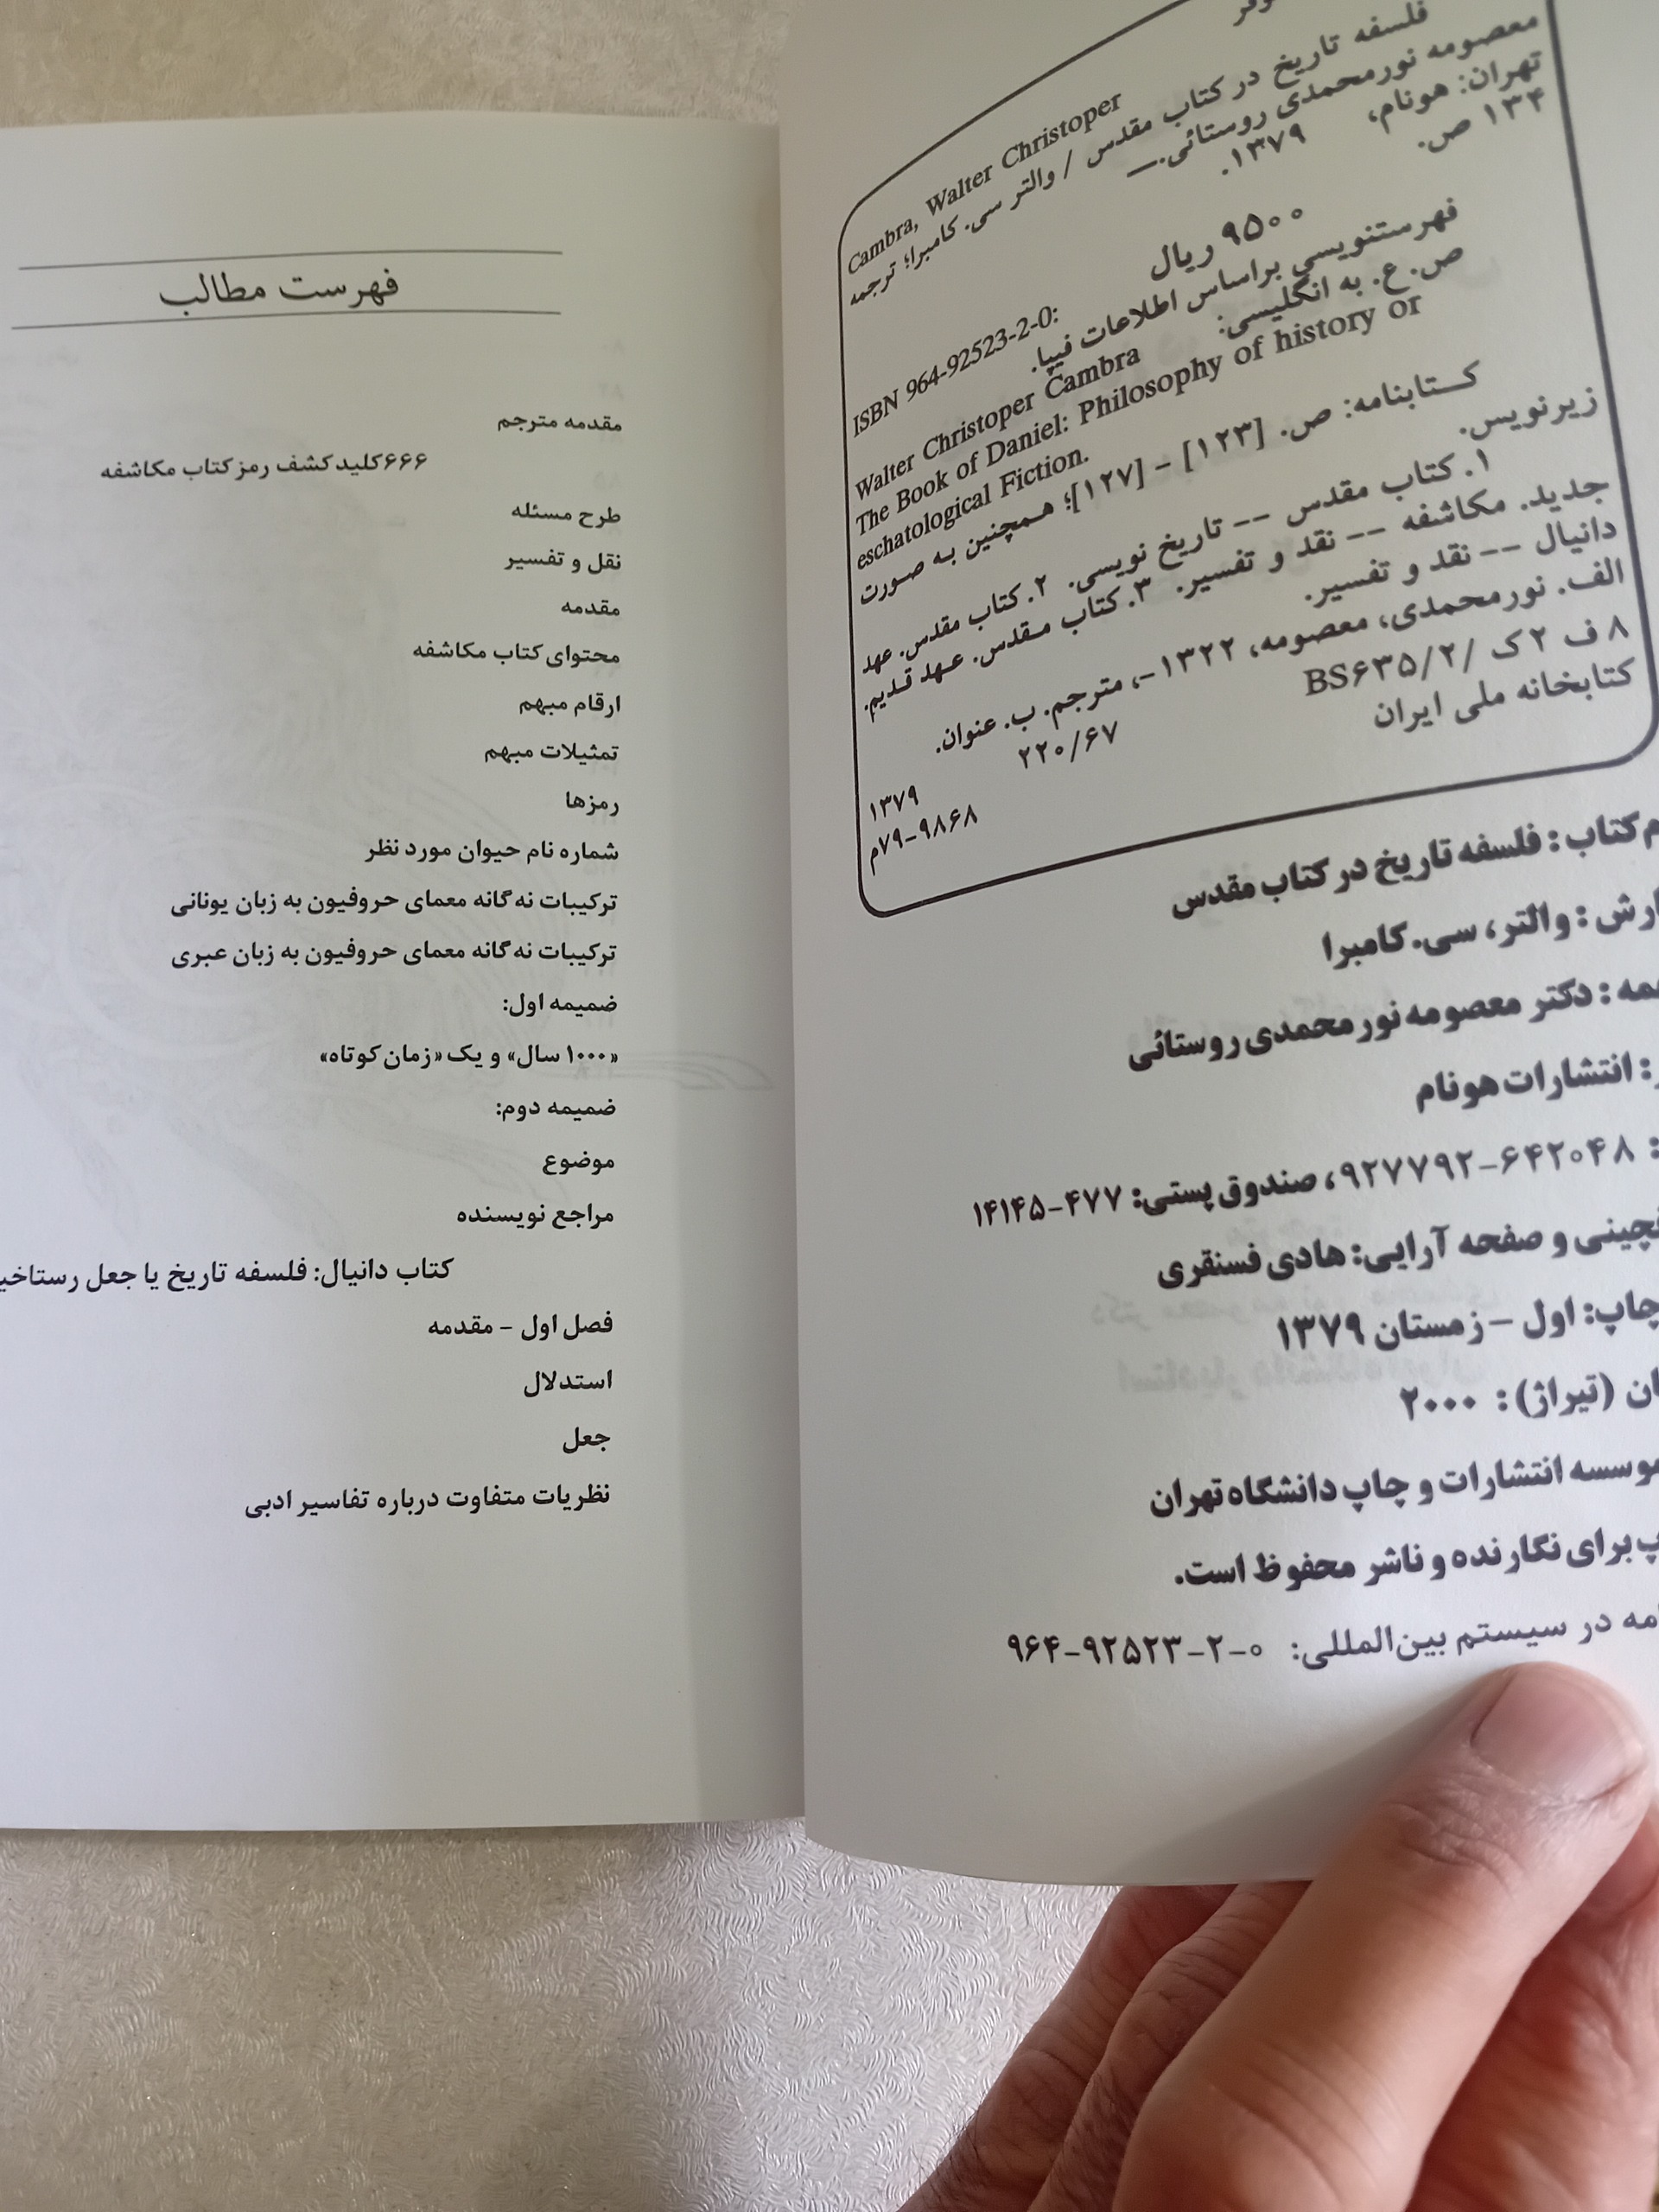 Cambra, Walter Christoper
فلسفه تاریخ در کتاب مقدس / والتر سی. کامبرا؛ ترجمه
معصومه نورمحمدی روستائی. ــ
تهران: هونام، ۱۳۷۹.
۱۳۴ ص.
ISBN 964-92523-2-0: ۹۵۰۰ ریال
فهرستنویسی براساس اطلاعات فیپا.
ص. ع. به انگلیسی: Walter Christoper Cambra
The Book of Daniel: Philosophy of history or
eschatological Fiction.
کتابنامه: ص. [۱۲۳] - [۱۲۷]؛ همچنین به صورت
زیرنویس.
۱. کتاب مقدس -- تاریخ نویسی. ۲. کتاب مقدس. عهد
جدید. مکاشفه -- نقد و تفسیر. ۳. کتاب مقدس. عهد قدیم.
دانیال -- نقد و تفسیر.
الف. نورمحمدی، معصومه، ۱۳۲۲-، مترجم. ب. عنوان.
۸ ف ۲ ک /BS۶۳۵/۲ ۲۲۰/۶۷
کتابخانه ملی ایران ۱۳۷۹
۷۹-۹۸۶۸م
کتاب : فلسفه تاریخ در کتاب مقدس
والتر، سی. کامبرا
دکتر معصومه نورمحمدی روستائی
انتشارات هونام
۶۴۲۰۴۸-۹۲۷۷۹۲، صندوق پستی: ۴۷۷-۱۴۱۴۵
و صفحه آرایی: هادی فسنقری
چاپ: اول - زمستان ۱۳۷۹
(تیراژ) : ۲۰۰۰
موسسه انتشارات و چاپ دانشگاه تهران
برای نگارنده و ناشر محفوظ است.
در سیستم بین‌المللی: ۰-۲-۹۲۵۲۳-۹۶۴
فهرست مطالب
مقدمه مترجم
۶۶۶ کلید کشف رمز کتاب مکاشفه
طرح مسئله
نقل و تفسیر
مقدمه
محتوای کتاب مکاشفه
ارقام مبهم
تمثیلات مبهم
رمزها
شماره نام حیوان مورد نظر
ترکیبات نه‌گانه معمای حروفیون به زبان یونانی
ترکیبات نه‌گانه معمای حروفیون به زبان عبری
ضمیمه اول:
«۱۰۰۰ سال» و یک «زمان کوتاه»
ضمیمه دوم:
موضوع
مراجع نویسنده
کتاب دانیال: فلسفه تاریخ یا جعل
فصل اول - مقدمه
استدلال
جعل
نظریات متفاوت درباره تفاسیر ادبی